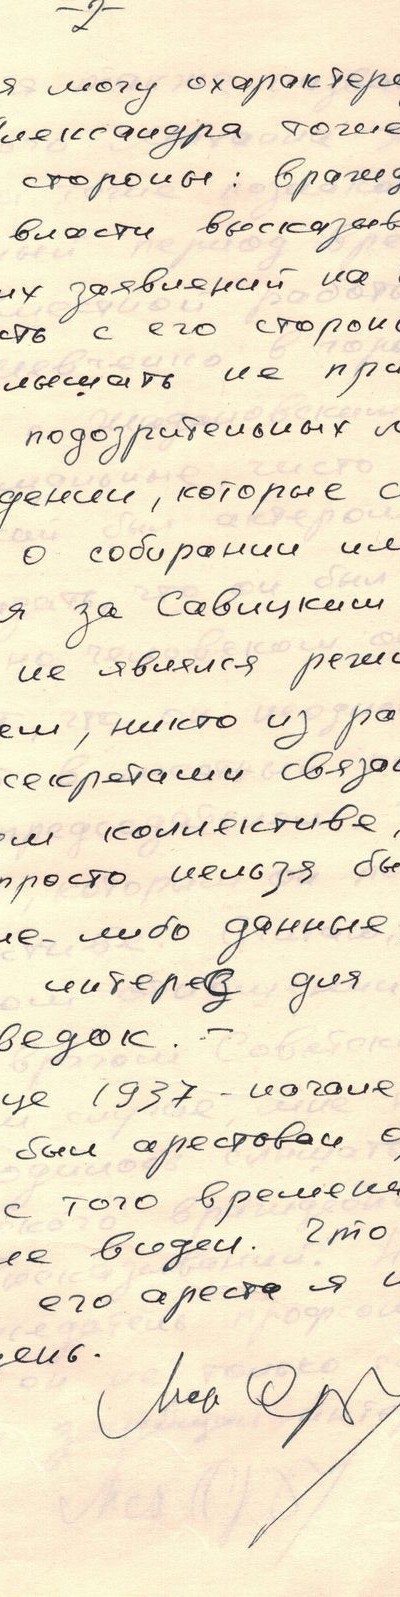 -2-
я могу охарактере
лександра точне
стороны: вражд
власти высказыв
их заявлений на
сть с его сторон
лышать не пр
подозрительных
дении, которые с
о собирании
я за Савицким
не являлся
ем, никто из ра
секретами связа
ем коллективе,
просто нельзя бы
ие-либо данные
интерес для
ведок. -
це 1937 - начале
был арестован
с того времени
не видел. Что
его ареста я
день.